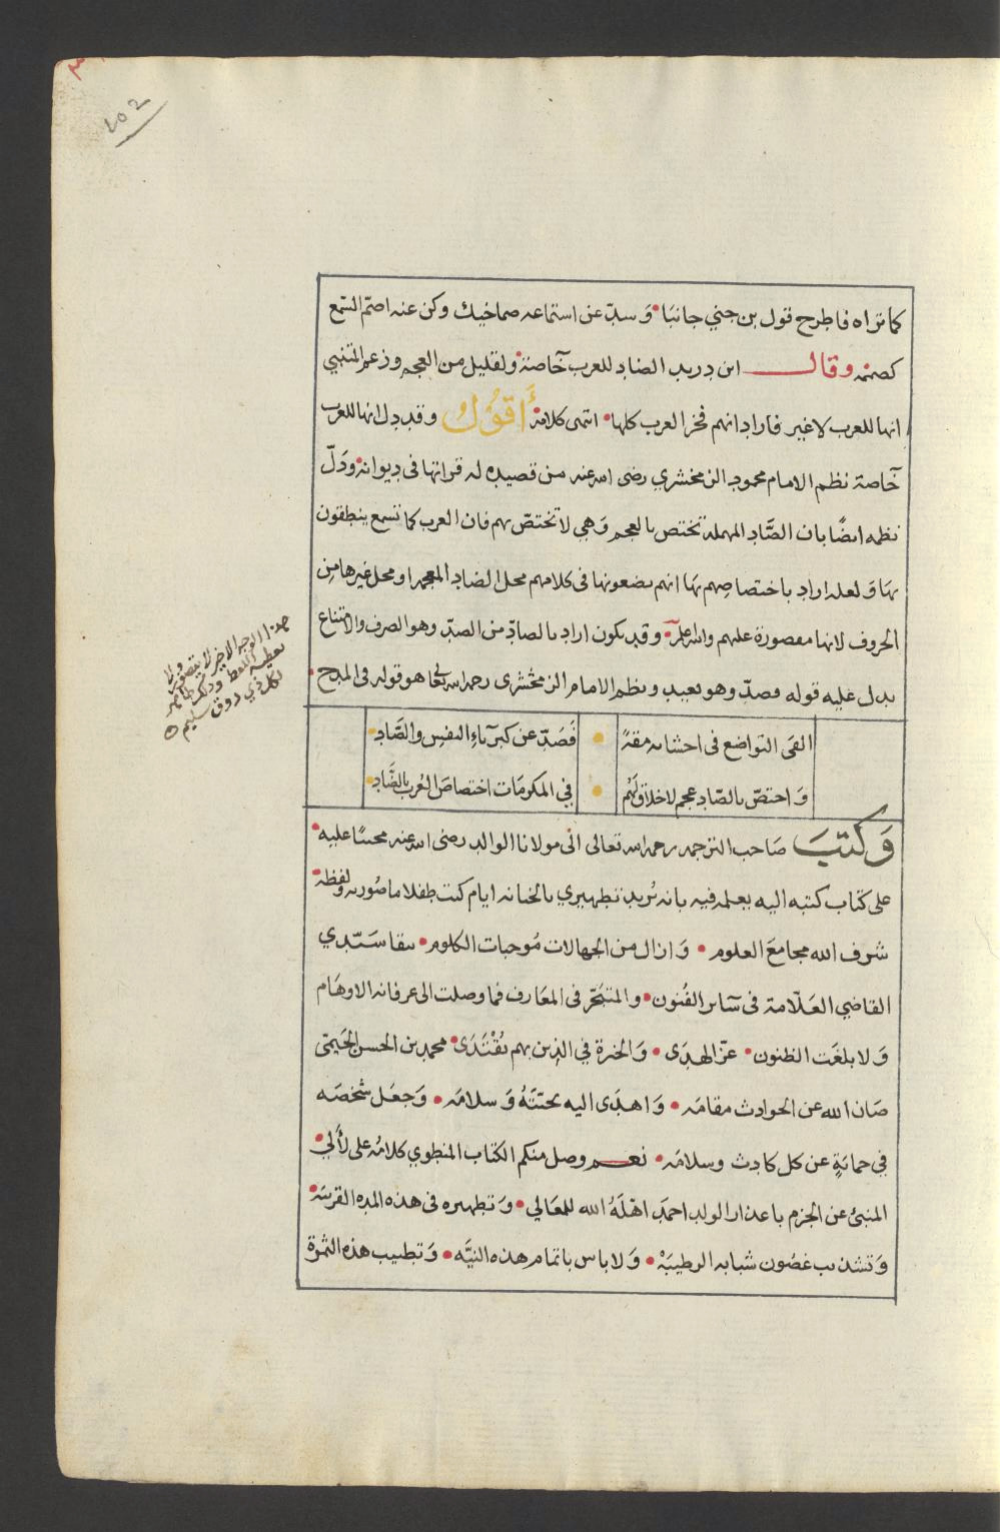 كما تراه فاطرح قول بن جني جانبًا وَسدّ عن استماعه صماخيك وكن عنه اصمّ السّمع
وقال ابن دريد الضاد للعرب خآصة ولقليل من العجم وزعم المتنبي
انها للعرب لاغير فاراد انهم فخر العرب كلها انتهى كلامه أَقوُلُ وقد دل انها للعرب
خآصة نظم الامام محمود الزمخشري رضى الله عنه من قصيده له قراتها فى ديوانه ودَلّ
نظمه ايضًا بان الصَّاد المهملة تختص بالعجم وَهي لا تختصّ بهم فان العرب كما تسمع ينطقون
بهَا وَلعله اراد باختصاصِهم بهَا انهم يضعونها فى كلامهم محل الضاد المعجمه او محل غيرها مِن
الحروف لانها مقصورة عليهم والله اعلم وقد يكون اراد بالصادّ من الصدّ وهو الصرف والامتناع
يدل عليه قوله فصدّ وهو بعيد ونظم الامام الزمخشرى رحمه الله تعالى هو قوله فى المدح
القى التواضع فى احشائه مقةً فَصَدّ عن كبرآءِ النفس والصَّادِ
وَاختصّ بالصّاد عجم لاخلاق لَهُم في المكرمَات اختصاصَ العُرب بالضَّادِ
وَكتبَ صَاحب الترجمه رحمه الله تعالى الى مولانا الوالد رضى الله عنه مجيبًا عليه
على كتاب كتبه اليه يعلمه فيه بانه يُريد تطهيري بالختانه ايام كنت طفلا ما صُورته ولفظه
شرف الله مجامعَ العلوم وَازال من الجهالات مُوجبات الكلوم ببقا سَيّدي
القاضي العَلّامة فى سَآئر الفُنون والمتبَحّر فى المعَارف فما وصلت الى عرفانه الاوهَام
وَلا بلغَت الظنون عزّ الهدَى وَالخيرة في الذين بهم يُقْتَدَى محمد بن الحسن الحَيمَى
صَان الله عن الحوادث مقامَه وَاهدَى اليه تحيّتَهُ وَسلامَه وَجعَل شخصَه
في حمايَةٍ عن كل حادث وسلامَه نعم وصل منكم الكتاب المنطوي كلامُه على لأَلي
المنبئُ عن الجزم باعذار الولد احمدَ اهّلَهُ الله للمعَالي وَتطهيره فى هذه المده القريبَة
وَتشذيب غصُون شبابه الرطيبَة وَلا باس باتمام هذه النيَّه وَتطييب هذه الثمرة